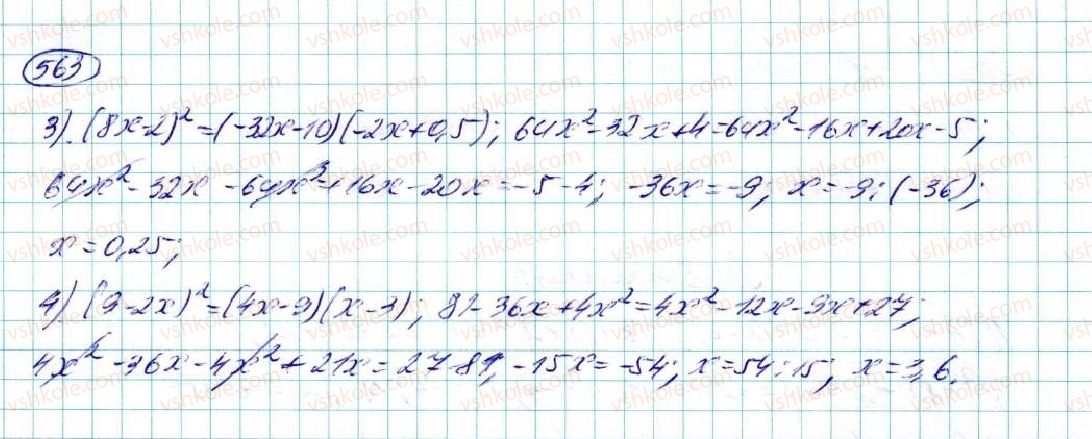 563
3). (8x-2)² = (-32x-10)(-2x+0,5); 64x²-32x+4=64x²-16x+20x-5;
64x²-32x-64x²+16x-20x=-5-4; -36x=-9; x=-9:(-36);
x=0,25;
4). (9-2x)²=(4x-9)(x-3); 81-36x+4x²=4x²-12x-9x+27;
4x²-36x-4x²+21x=27-81; -15x=-54; x=54:15; x=3,6.